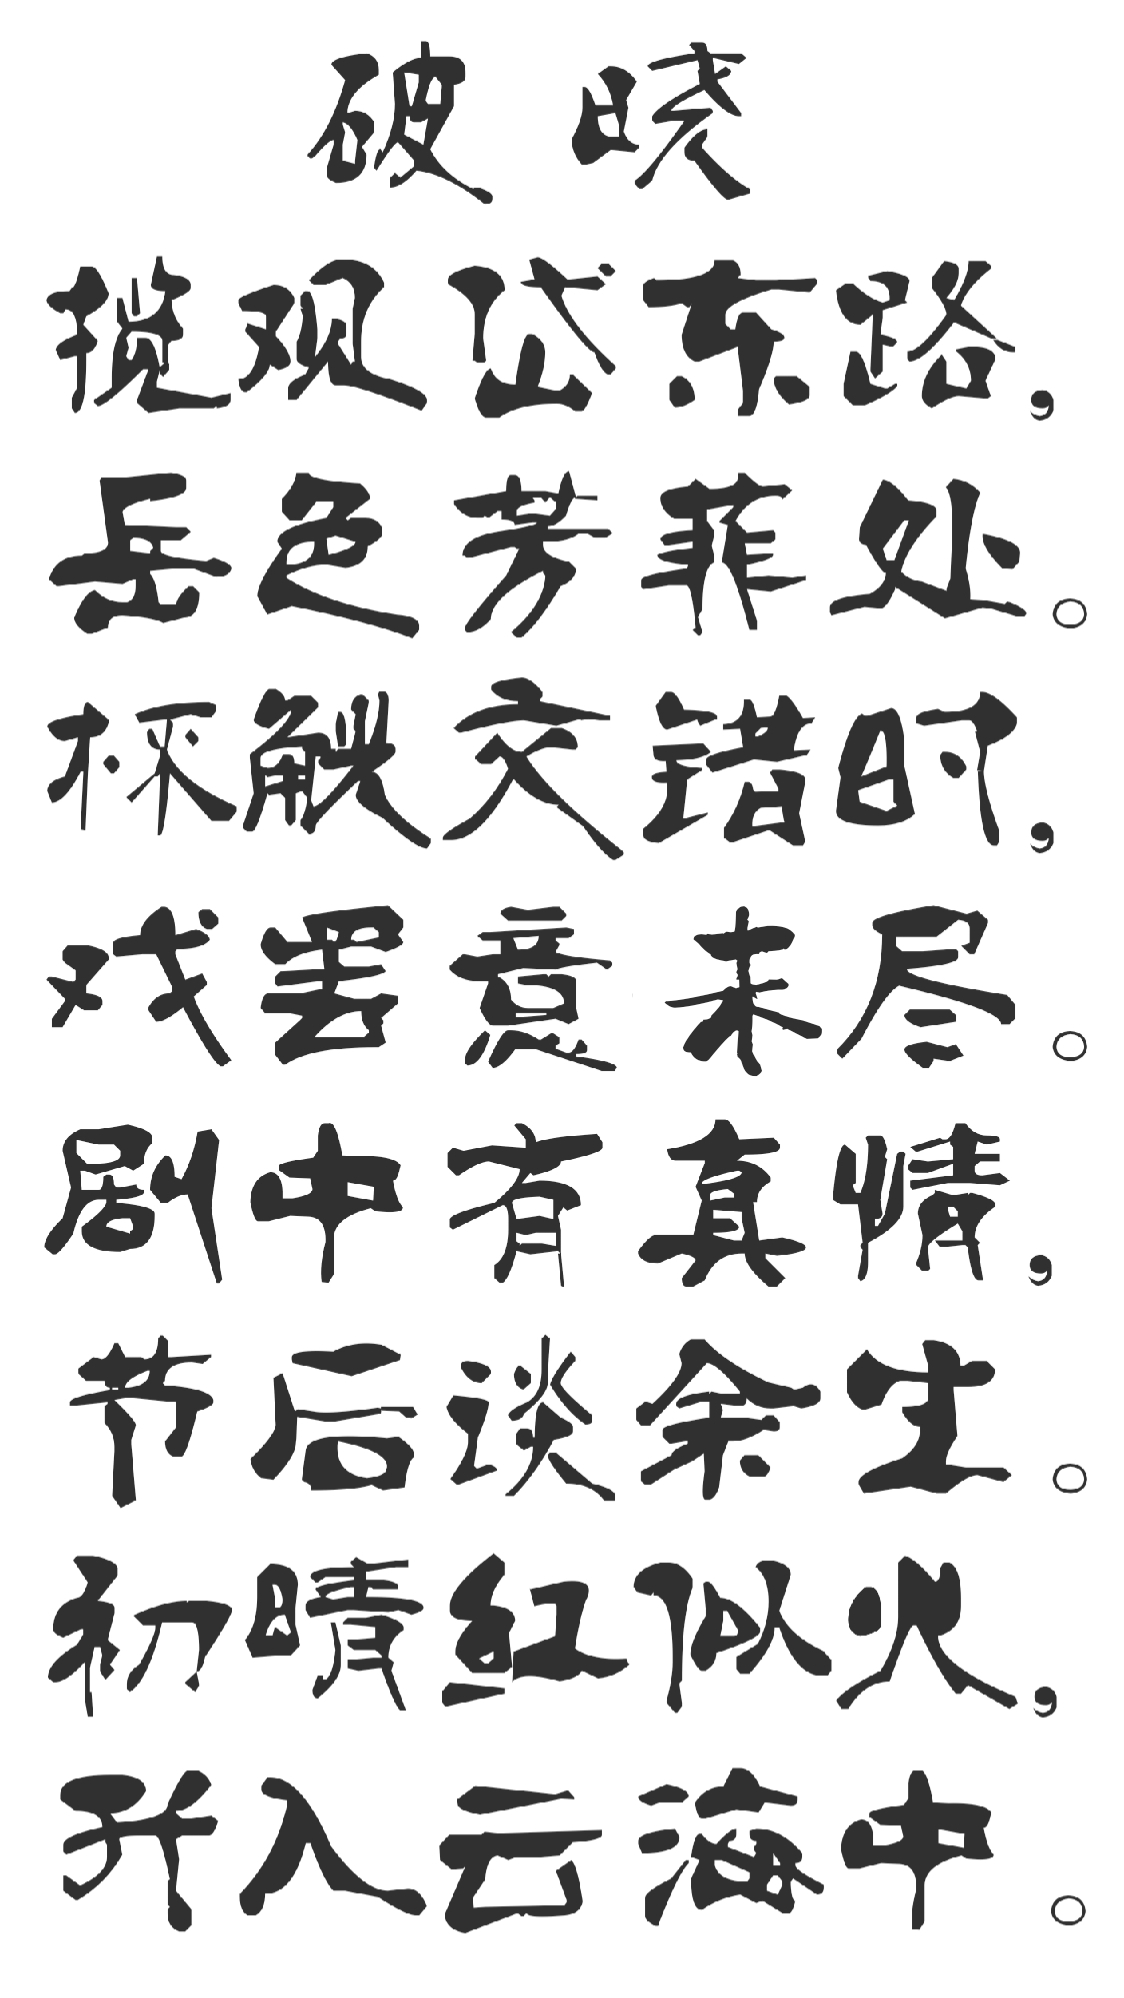 破 晓
揽观岱东路，
岳色芳菲处。
杯觥交错时，
戏罢意未尽。
剧中有真情，
节后谈余生。
初晴红似火，
升入云海中。